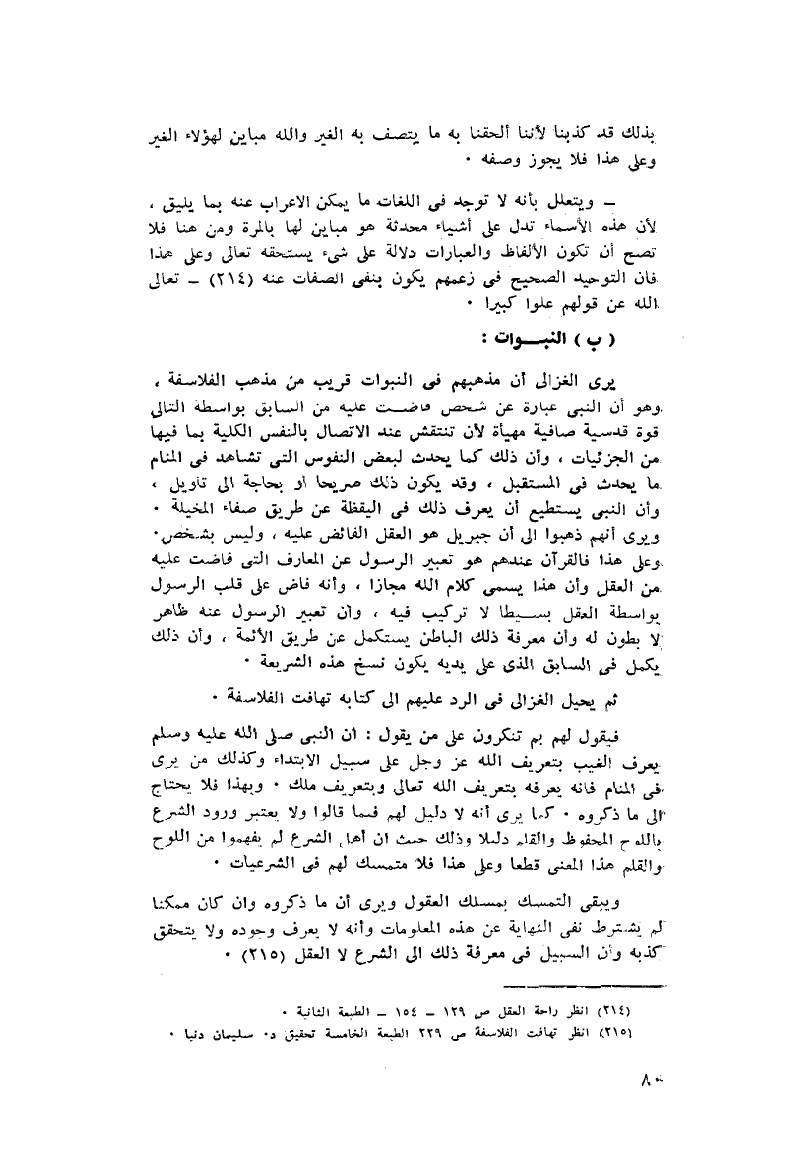 بذلك قد كذبنا لأننا ألحقنا به ما يتصف به الغير والله مباين لهؤلاء الغير
وعلى هذا فلا يجوز وصفه ٠
– ويتعلل بأنه لا توجد فى اللغات ما يمكن الاعراب عنه بما يليق ،
لأن هذه الأسماء تدل على أشياء محدثة هو مباين لها بالمرة ومن هنا فلا
تصح أن تكون الألفاظ والعبارات دلالة على شىء يستحقه تعالى وعلى هذا
فان التوحيد الصحيح فى زعمهم يكون بنفى الصفات عنه (٢١٤) – تعالى
الله عن قولهم علوا كبيرا ٠
( ب ) النبـــوات :
يرى الغزالى أن مذهبهم فى النبوات قريب من مذهب الفلاسفة ،
وهو أن النبى عبارة عن شخص فاضت عليه من السابق بواسطة التالى
قوة قدسية صافية مهيأة لأن تنتقش عند الاتصال بالنفس الكلية بما فيها
من الجزئيات ، وأن ذلك كما يحدث لبعض النفوس التى تشاهد فى المنام
ما يحدث فى المستقبل ، وقد يكون ذلك صريحا أو بحاجة الى تأويل ،
وأن النبى يستطيع أن يعرف ذلك فى اليقظة عن طريق صفاء المخيلة ٠
ويرى أنهم ذهبوا الى أن جبريل هو العقل الفائض عليه ، وليس بشخص٠
وعلى هذا فالقرآن عندهم هو تعبير الرسول عن المعارف التى فاضت عليه
من العقل وأن هذا يسمى كلام الله مجازا ، وأنه فاض على قلب الرسول
بواسطة العقل بسيطا لا تركيب فيه ، وأن تعبير الرسول عنه ظاهر
لا بطون له وأن معرفة ذلك الباطن يستكمل عن طريق الأئمة ، وأن ذلك
يكمل فى السابق الذى على يديه يكون نسخ هذه الشريعة ٠
ثم يحيل الغزالى فى الرد عليهم الى كتابه تهافت الفلاسفة ٠
فيقول لهم بم تنكرون على من يقول : ان النبى صلى الله عليه وسلم
يعرف الغيب بتعريف الله عز وجل على سبيل الابتداء وكذلك من يرى
فى المنام فانه يعرفه بتعريف الله تعالى وبتعريف ملك ٠ وبهذا فلا يحتاج
الى ما ذكروه ٠ كما يرى أنه لا دليل لهم فيما قالوا ولا يعتبر ورود الشرع
باللوح المحفوظ والقلم دليلا وذلك حيث ان أهل الشرع لم يفهموا من اللوح
والقلم هذا المعنى قطعا وعلى هذا فلا متمسك لهم فى الشرعيات ٠
ويبقى التمسك بمسلك العقول ويرى أن ما ذكروه وان كان ممكنا
لم يشترط نفى النهاية عن هذه المعلومات وأنه لا يعرف وجوده ولا يتحقق
كذبه وأن السبيل فى معرفة ذلك الى الشرع لا العقل (٢١٥) ٠
(٢١٤) انظر راحة العقل ص ١٢٩ – ١٥٤ – الطبعة الثانية ٠
(٢١٥) انظر تهافت الفلاسفة ص ٢٢٩ الطبعة الخامسة تحقيق د٠ سليمان دنيا ٠
٨٠